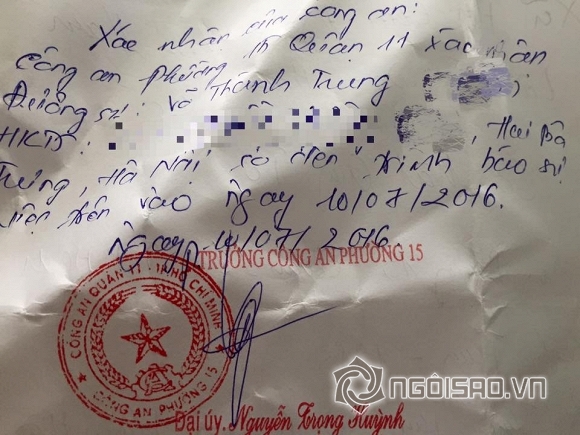 Xác nhận của công an:
Công an phường 15 Quận 11 xác nhận
Đương sự: Võ Thành Trung
HKTT: , Hai Bà
Trưng, Hà Nội có đến trình báo sự
việc trên vào ngày 10/07/2016.
Ngày 14/07/2016.
TRƯỞNG CÔNG AN PHƯỜNG 15
CÔNG AN QUẬN 11 - T.P HỒ CHÍ MINH
CÔNG AN PHƯỜNG 15
NGÔISAO.VN
Đại úy. Nguyễn Trọng Huỳnh